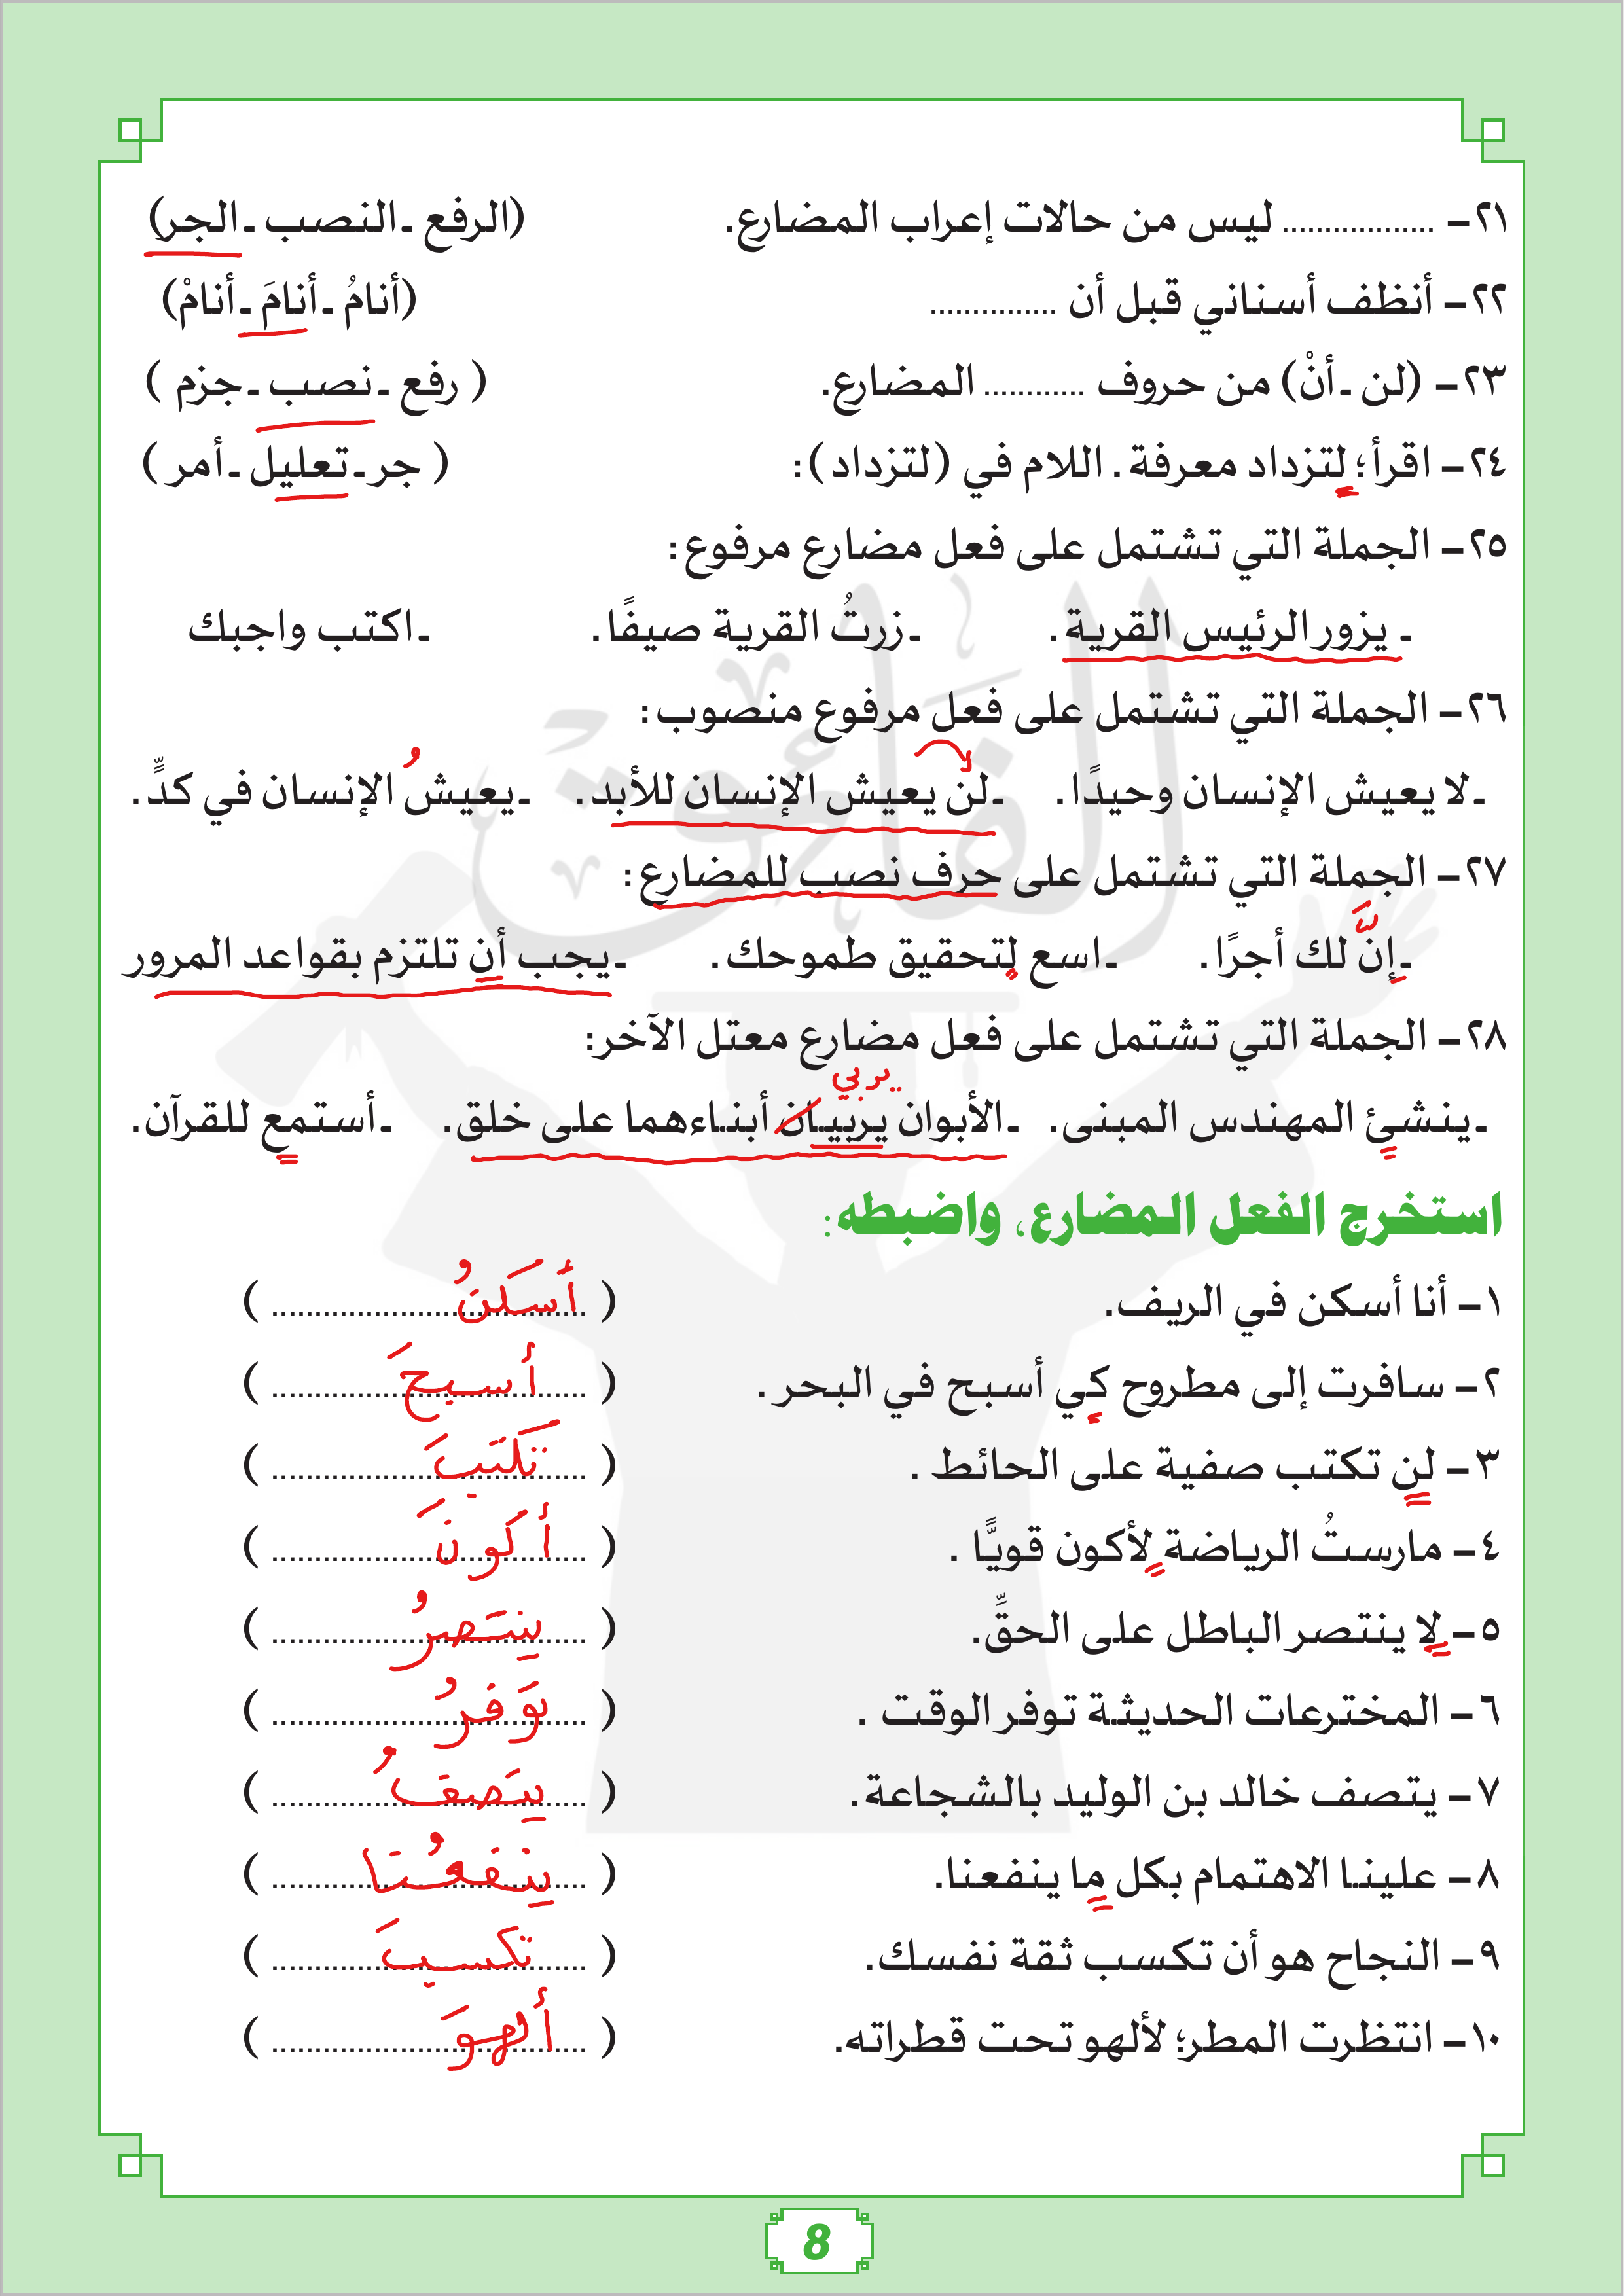 ٢١- .................. ليس من حالات إعراب المضارع. (الرفع ـ النصب ـ الجر)
٢٢- أنظف أسناني قبل أن ............... (أنامُ ـ أنامَ ـ أنامْ)
٢٣- (لن ـ أنْ) من حروف ............ المضارع. ( رفع ـ نصب ـ جزم )
٢٤- اقرأ؛ لتزداد معرفة. اللام في (لتزداد): ( جر ـ تعليل ـ أمر )
٢٥- الجملة التي تشتمل على فعل مضارع مرفوع:
ـ يزور الرئيس القرية. ـ زرتُ القرية صيفًا. ـ اكتب واجبك
٢٦- الجملة التي تشتمل على فعل مرفوع منصوب:
ـ لا يعيش الإنسان وحيدًا. ـ لن يعيش الإنسان للأبد. ـ يعيشُ الإنسان في كدٍّ.
٢٧- الجملة التي تشتمل على حرف نصب للمضارع:
ـ إنَّ لك أجرًا. ـ اسع لتحقيق طموحك. ـ يجب أن تلتزم بقواعد المرور
٢٨- الجملة التي تشتمل على فعل مضارع معتل الآخر:
يربي
ـ ينشئ المهندس المبنى. ـ الأبوان يربيان أبناءهما على خلق. ـ أستمع للقرآن.
استخرج الفعل المضارع، واضبطه:
١- أنا أسكن في الريف. ( أسكنُ )
٢- سافرت إلى مطروح كي أسبح في البحر. ( أسبحَ )
٣- لن تكتب صفية على الحائط. ( تكتبَ )
٤- مارستُ الرياضة لأكون قويًّا. ( أكونَ )
٥- لا ينتصر الباطل على الحقِّ. ( ينتصرُ )
٦- المخترعات الحديثة توفر الوقت. ( توفرُ )
٧- يتصف خالد بن الوليد بالشجاعة. ( يتصفُ )
٨- علينا الاهتمام بكل ما ينفعنا. ( ينفعُنا )
٩- النجاح هو أن تكسب ثقة نفسك. ( تكسبَ )
١٠- انتظرت المطر؛ لألهو تحت قطراته. ( ألهوَ )
8
الفائق